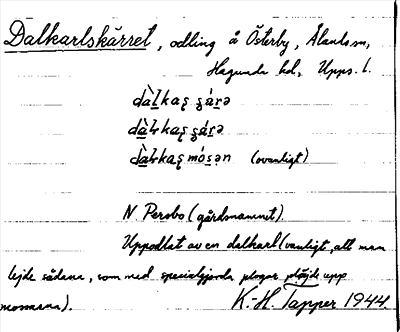 Dalkarlskärret, odling å Österby, Ålands sn,
Hagunda hd, Upps. l.
dàḷkaș șárə
dàḷkaș șáṛə
dàḷkaș mósən (ovanligt)
N Persbo (gårdsnamnet).
Uppodlat av en dalkarl (vanligt, att man
lejde sådana, som med specialgjorda plogar plöjde upp
mossarna). K.-H. Tapper 1944